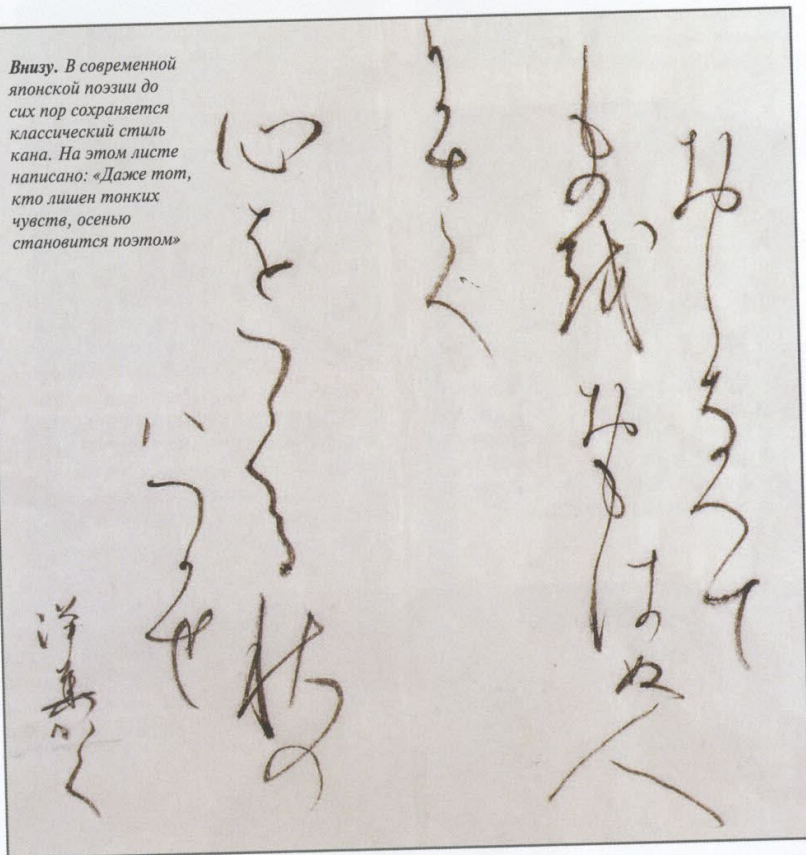 Внизу. В современной
японской поэзии до
сих пор сохраняется
классический стиль
кана. На этом листе
написано: «Даже тот,
кто лишен тонких
чувств, осенью
становится поэтом»
おしなへて
もの越おもはぬ人
にさへ
心をつくる秋の
ハつかせ